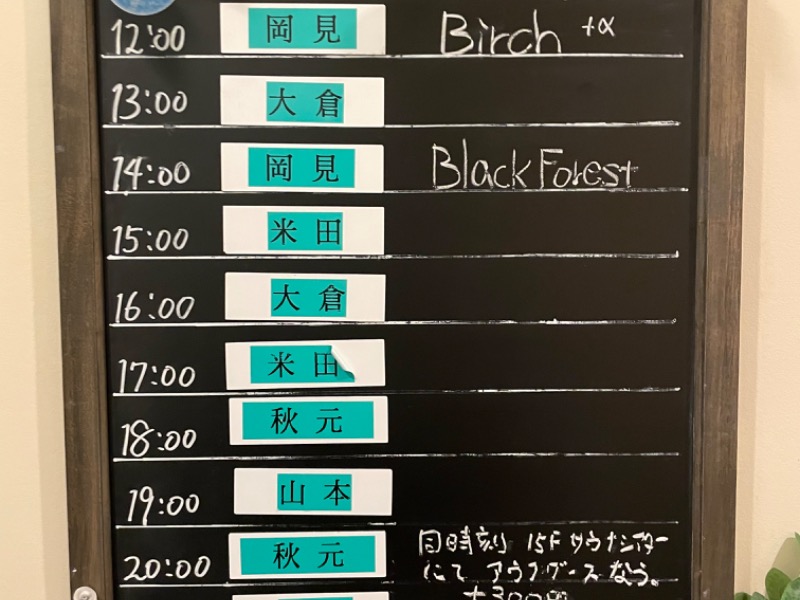 12:00 岡見 Birch +α
13:00 大倉
14:00 岡見 Black Forest
15:00 米田
16:00 大倉
17:00 米田
18:00 秋元
19:00 山本
20:00 秋元 同時刻 15F サウナシアター
にて アウフグース なう。
+300円